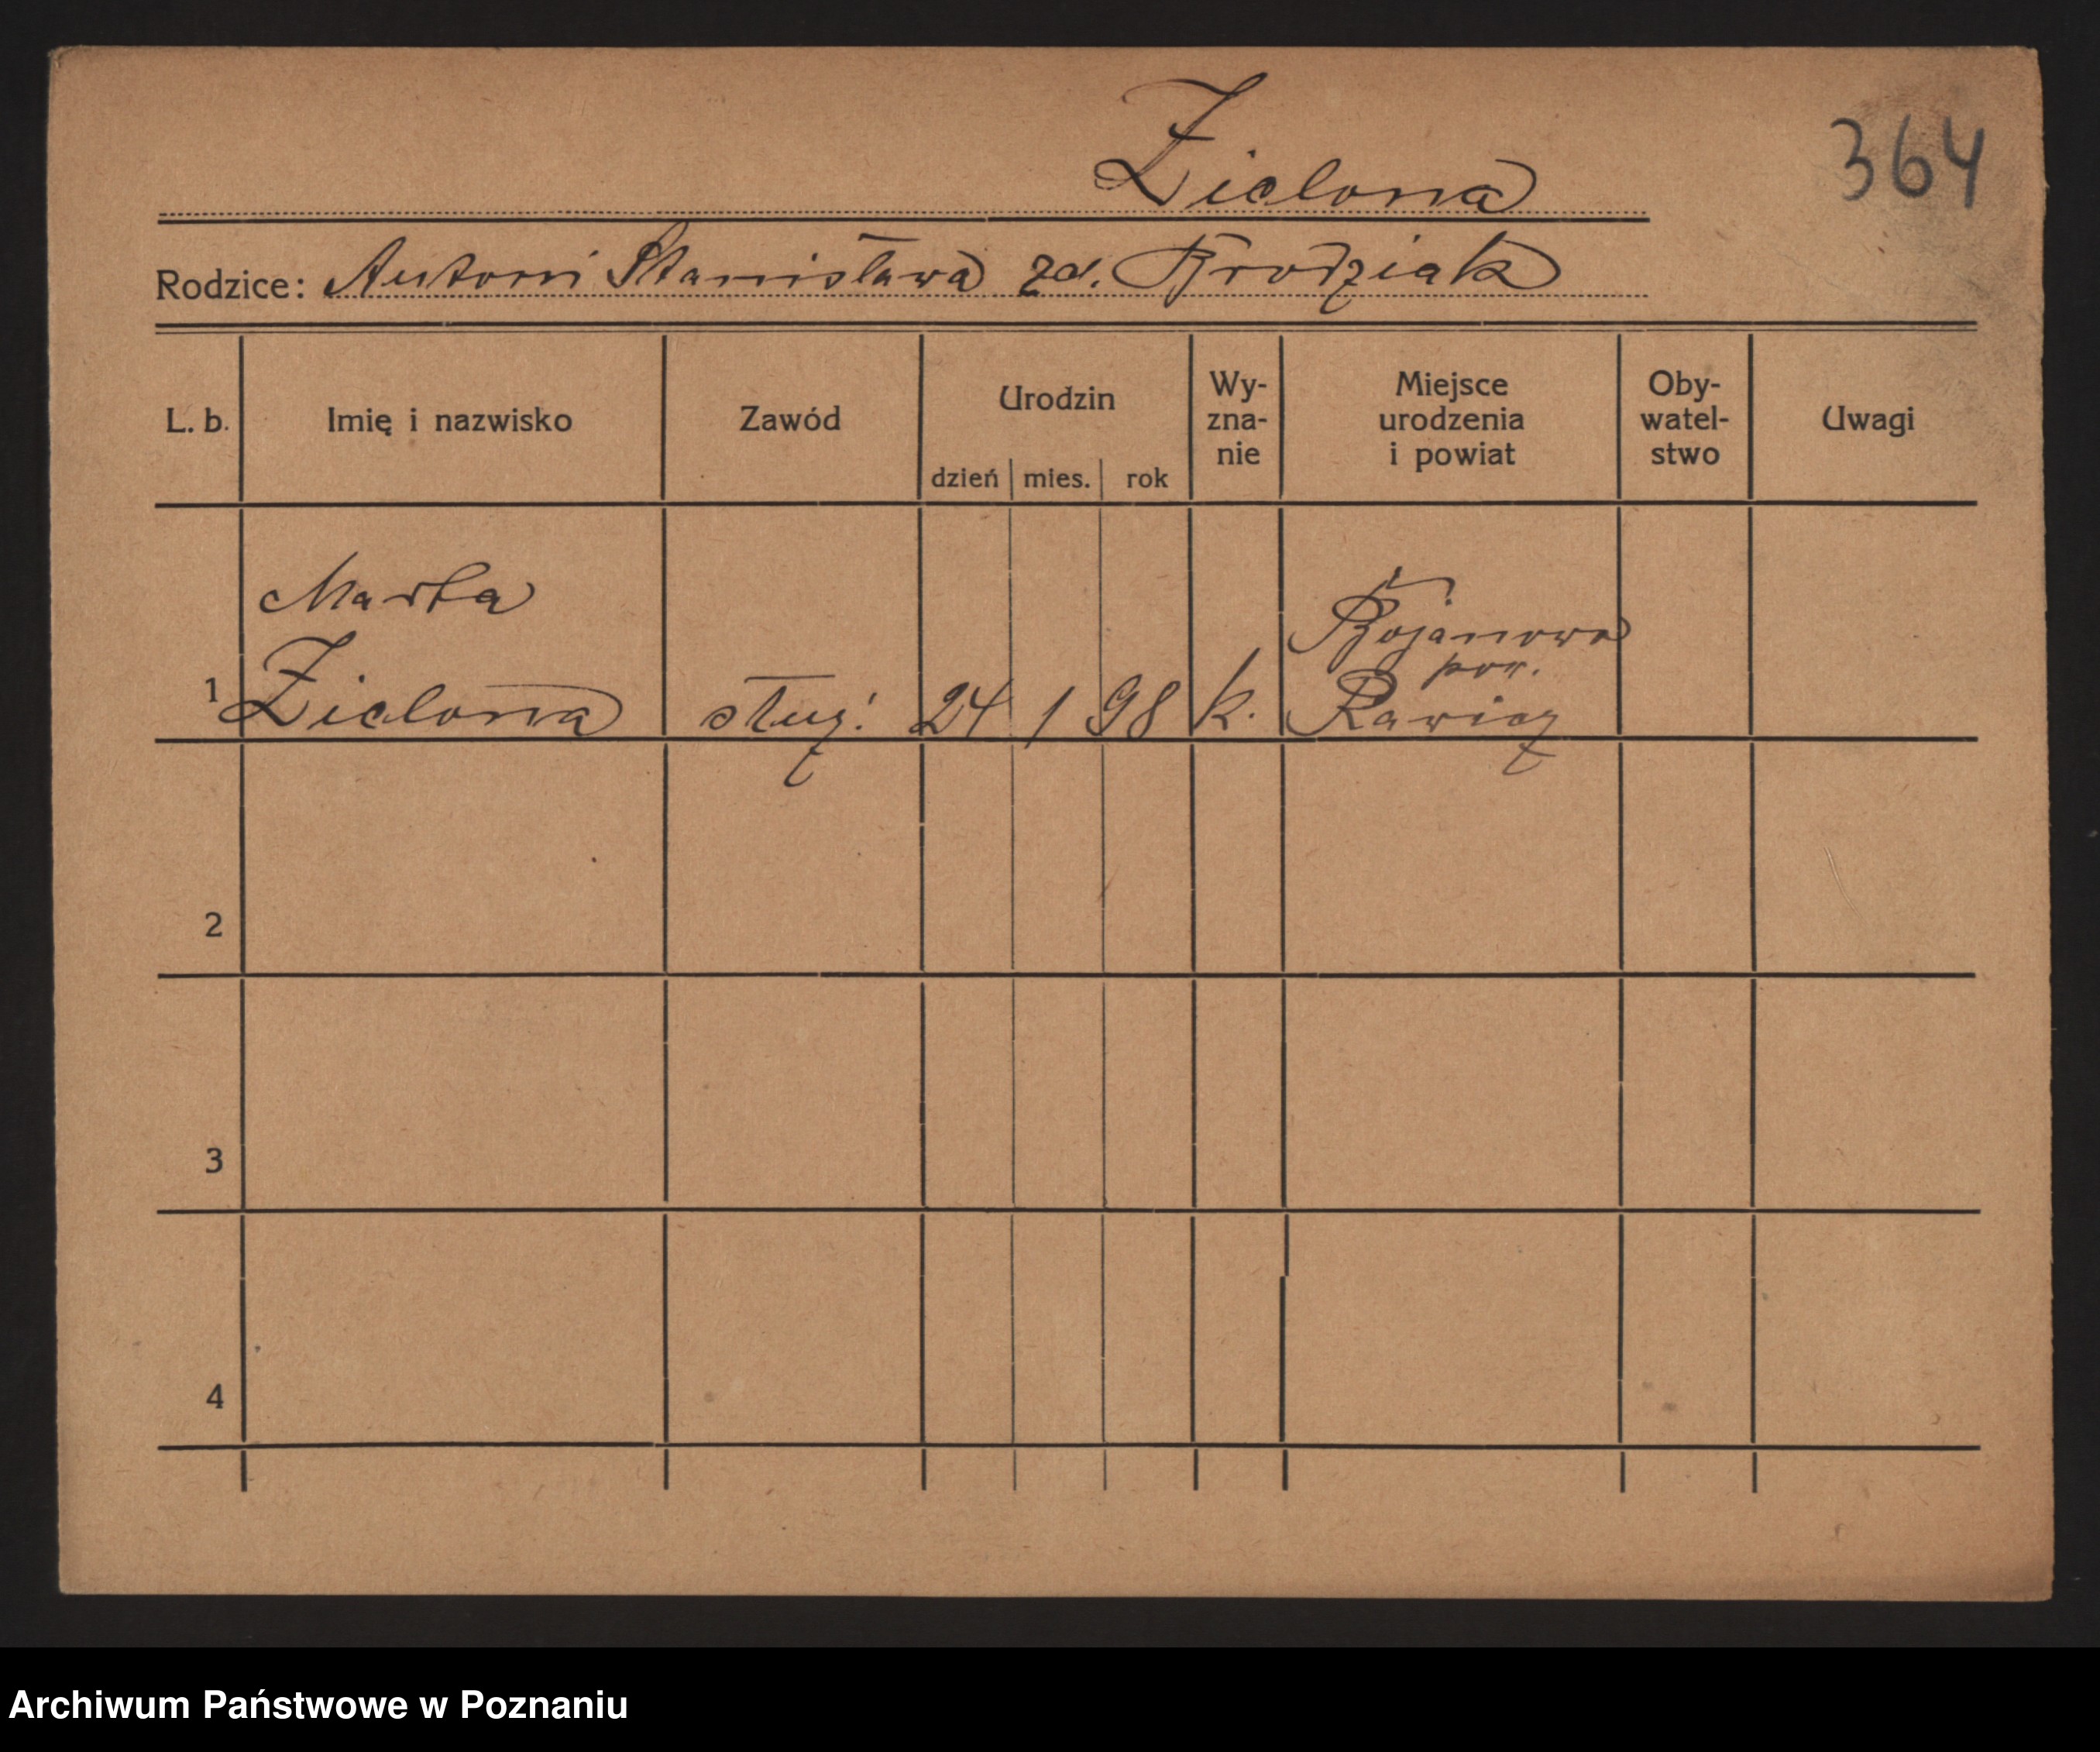 Zielona
364
Rodzice: Antoni Stanisława zd. Brodziak
L. b. Imię i nazwisko Zawód Urodzin dzień mies. rok Wy-zna-nie Miejsce urodzenia i powiat Oby-watel-stwo Uwagi
Marta
Bojanowo
pow.
1 Zielona służ. 24 1 98 k. Rawicz
2
3
4
Archiwum Państwowe w Poznaniu